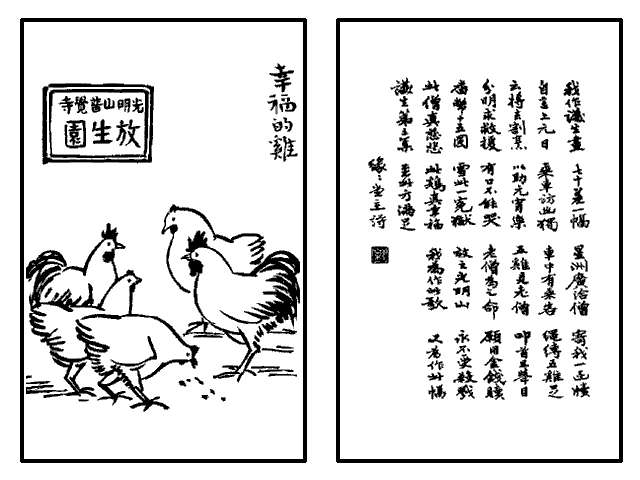 幸福的雞
光明山普覺寺
放生園
我作護生畫 七十差一幅 星洲廣洽僧 寄我一函牘
自言上元日 乘車訪幽獨 車中有乘客 繩縛五雞足
云將去割烹 以助元宵樂 五雞見老僧 叩首且舉目
分明求救援 有口不能哭 老僧為乞命 願用金錢贖
番幣十五圓 雪此一冤獄 放之光明山 永不受殺戮
此僧真慈悲 此雞真幸福 我為作此歌 又為作此幅
護生第三集 至此方滿足
緣々堂主詩